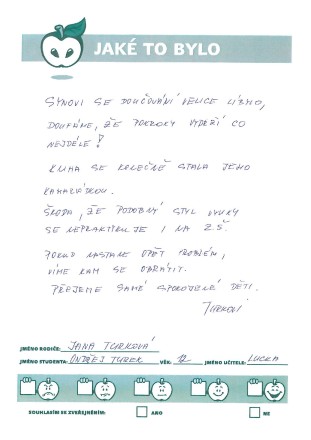 JAKÉ TO BYLO
SYNOVI SE DOUČOVÁNÍ VELICE LÍBILO,
DOUFÁME, ŽE POKROKY VYDRŽÍ CO
NEJDÉLE!
SE KONEČNĚ STALA JEHO
KAMARÁDKOU.
ŠKODA, ŽE PODOBNÝ STYL VÝUKY
SE NEPRAKTIKUJE I NA ZŠ.
POKUD NASTANE OPĚT PROBLÉM,
VÍME KAM SE OBRÁTIT.
PŘEJEME SAMÉ SPOKOJENÉ DĚTI.
TURKOVI
JMÉNO RODIČE: JANA TURKOVÁ
JMÉNO STUDENTA: ONDŘEJ TUREK VĚK: 12 JMÉNO UČITELE: LUCKA
SOUHLASÍM SE ZVEŘEJNĚNÍM: ANO NE